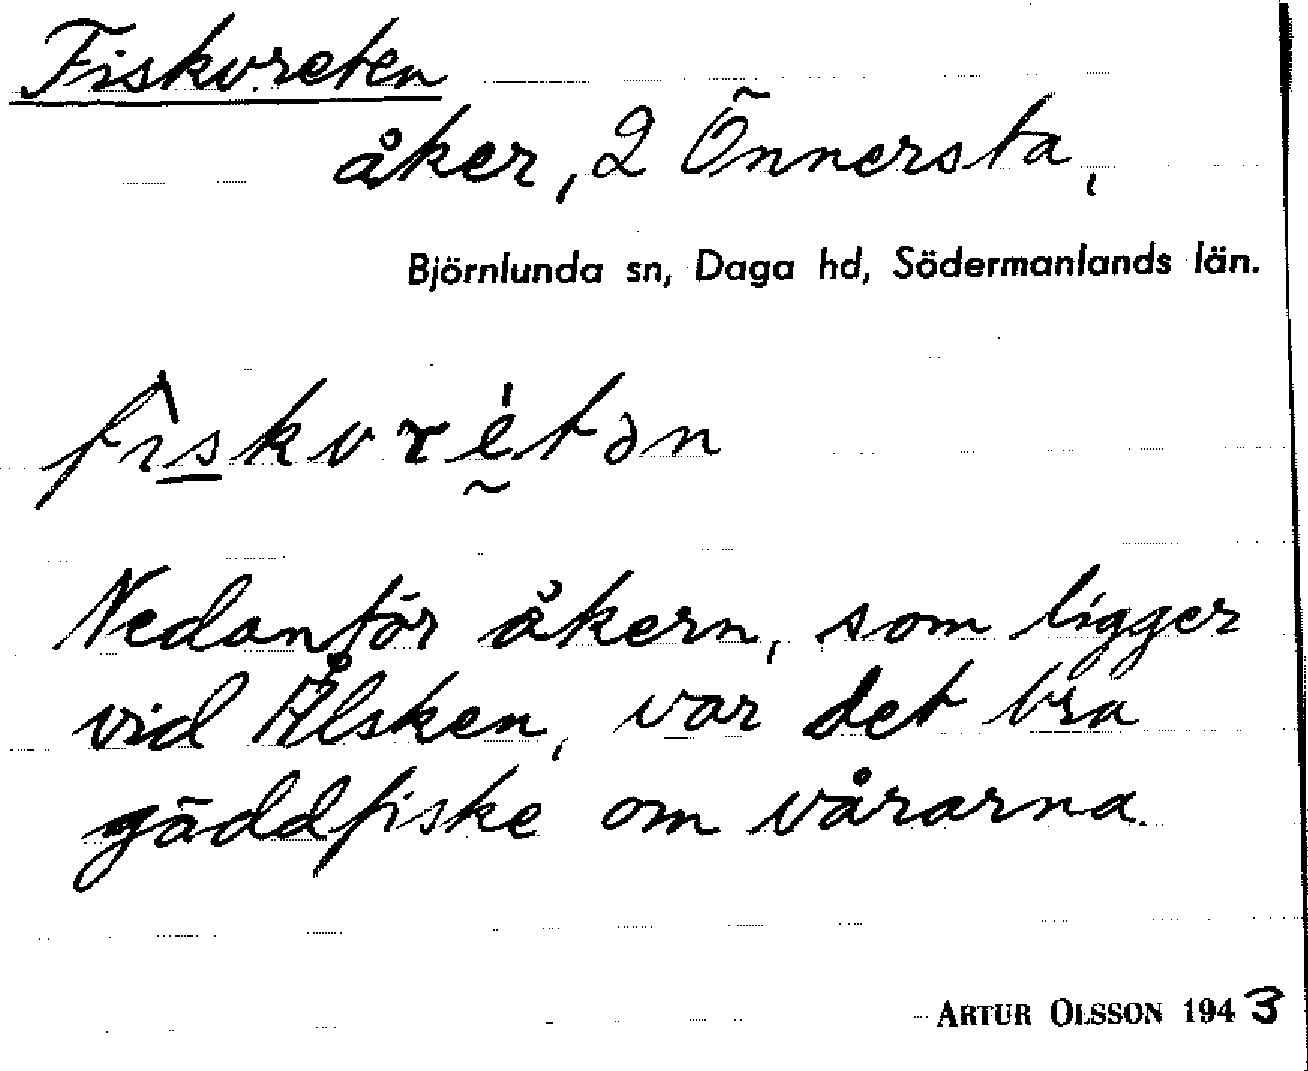 Fiskvreten
åker, 2 Önnersta,
Björnlunda sn, Daga hd, Södermanlands län.
fiskvretən
Nedanför åkern, som ligger
vid Ålsken, var det bra
gäddfiske om vårarna.
ARTUR OLSSON 1943